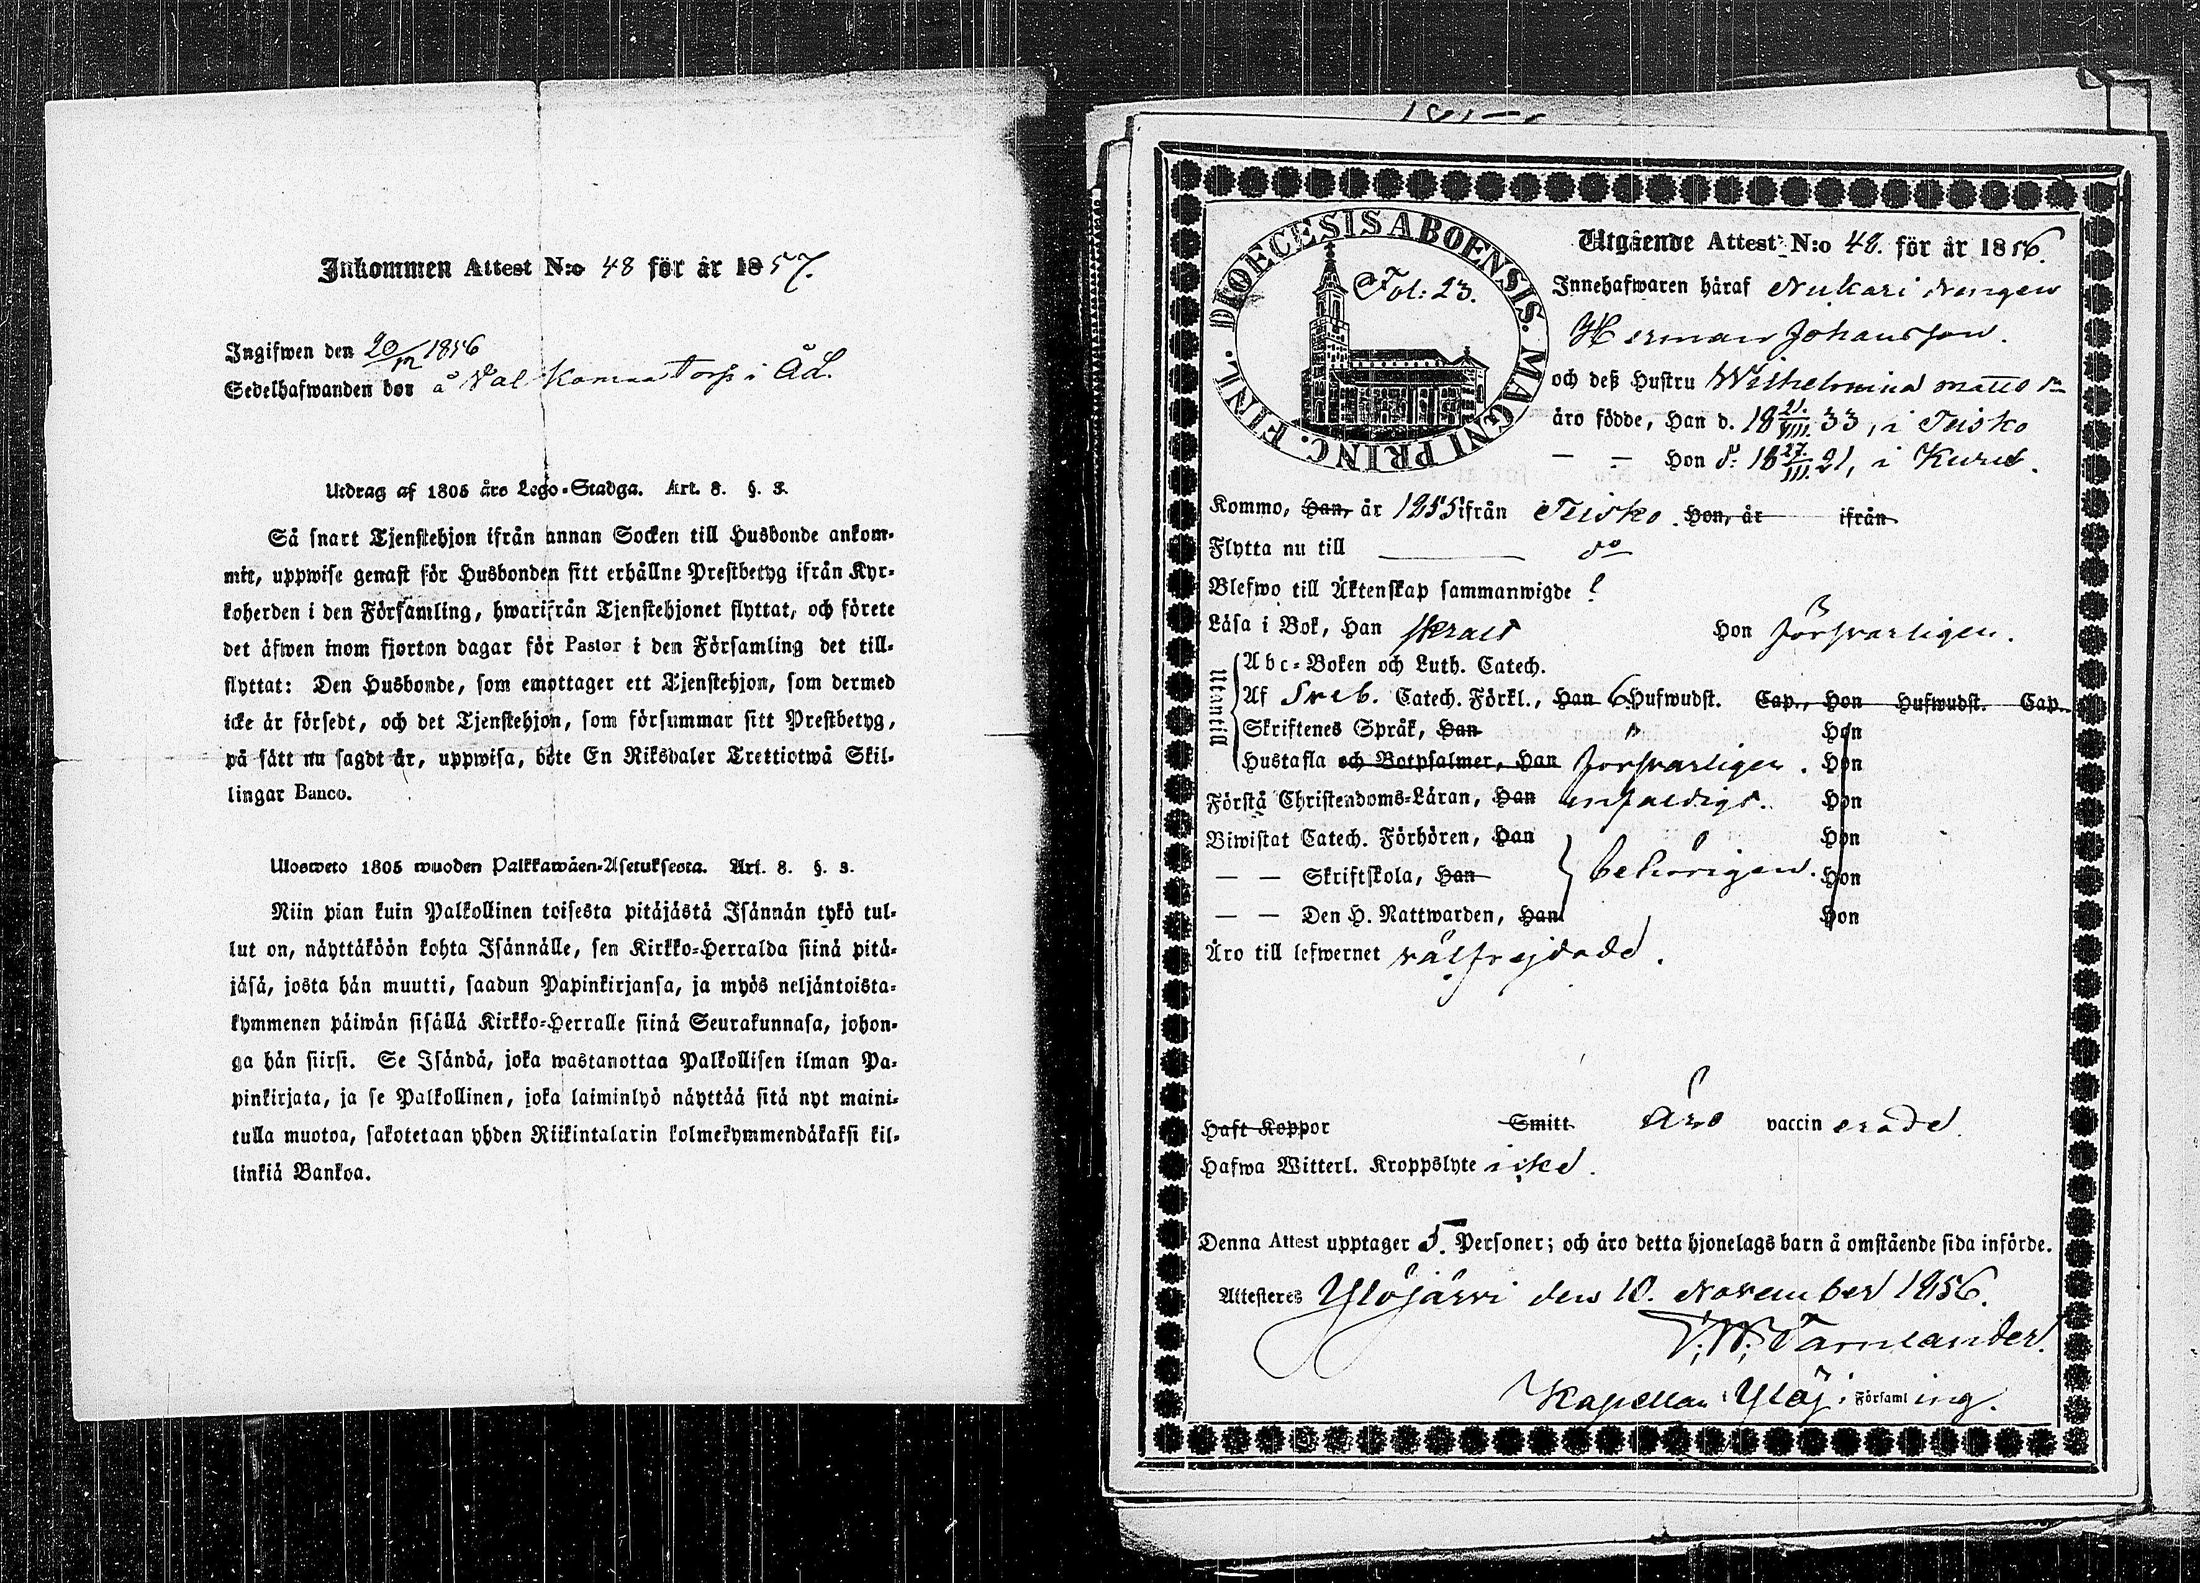 Inkommen Attest N:o 48 för år 1857.
Ingifwen den 20/12 1856
Sedelhafwanden bor å Torp i
Utdrag af 1805 års Lego-Stadga. Art. 8. §. 3.
Så snart Tjenstehjon ifrån annan Socken till Husbonde ankom-
mit, uppwise genast för Husbonden sitt erhållne Prestbetyg ifrån Kyr-
koherden i den Församling, hwarifrån Tjenstehjonet flyttat, och förete
det äfwen inom fjorton dagar för Pastor i den Församling det till-
flyttat: Den Husbonde, som emottager ett Tjenstehjon, som dermed
icke är försedt, och det Tjenstehjon, som försummar sitt Prestbetyg,
på sätt nu sagdt är, uppwisa, böte En Riksdaler Trettiotwå Skil-
lingar Banco.
Ulosweto 1805 wuoden Palkkawäen-Asetuksesta. Art. 8. §. 3.
Niin pian kuin Palkollinen toisesta pitäjästä Isännän tykö tul-
lut on, näyttäköön kohta Isännälle, sen Kirkko-Herralda siinä pitä-
jäsä, josta hän muutti, saadun Papinkirjansa, ja myös neljäntoista-
kymmenen päiwän sisällä Kirkko-Herralle siinä Seurakunnasa, johon-
ga hän siirsi. Se Isändä, joka wastanottaa Palkollisen ilman Pa-
pinkirjata, ja se Palkollinen, joka laiminlyö näyttää sitä nyt maini-
tulla muotoa, sakotetaan yhden Riikintalarin kolmekymmendäkaksi kil-
linkiä Bankoa.
DIOECESIS ABOENSIS. MAGNI PRINC. FINL.
Fol: 23.
Utgående Attest N:o 48. för år 1856.
Innehafwaren häraf Nukari Drängen
Herman Johansson.
och deß Hustru Wilhelmina Matts dr
äro födde, Han d. 18 21/VIII. 33, i Teisko
— — Hon d: 18 27/III. 21, i Kuru.
Kommo, Han, år 1855 ifrån Teisko. Hon, år ifrån
Flytta nu till do
Blefwo till Äktenskap sammanwigde
Läsa i Bok, Han Hon försvarligen.
Utantill
Abc-Boken och Luth. Catech.
Af Sveb. Catech. Förkl., Han 6 Hufwudst. Cap., Hon Hufwudst. Cap.
Skriftenes Språk, Han " Hon
Hustafla och Botpsalmer, Han försvarligen. Hon
Förstå Christendoms-Läran, Han enfaldigt. Hon
Biwistat Catech. Förhören, Han Hon
— — Skriftskola, Han behörigen. Hon
— — Den H. Nattwarden, Han Hon
Äro till lefwernet välfrejdade.
Haft Koppor Smitt Äro vaccinerade.
Hafwa Witterl. Kroppslyte icke.
Denna Attest upptager 5. Personer; och äro detta hjonelags barn å omstående sida införde.
Attesteres Ylöjärvi den 10. November 1856.
Kapellan i Ylöj. Församling.